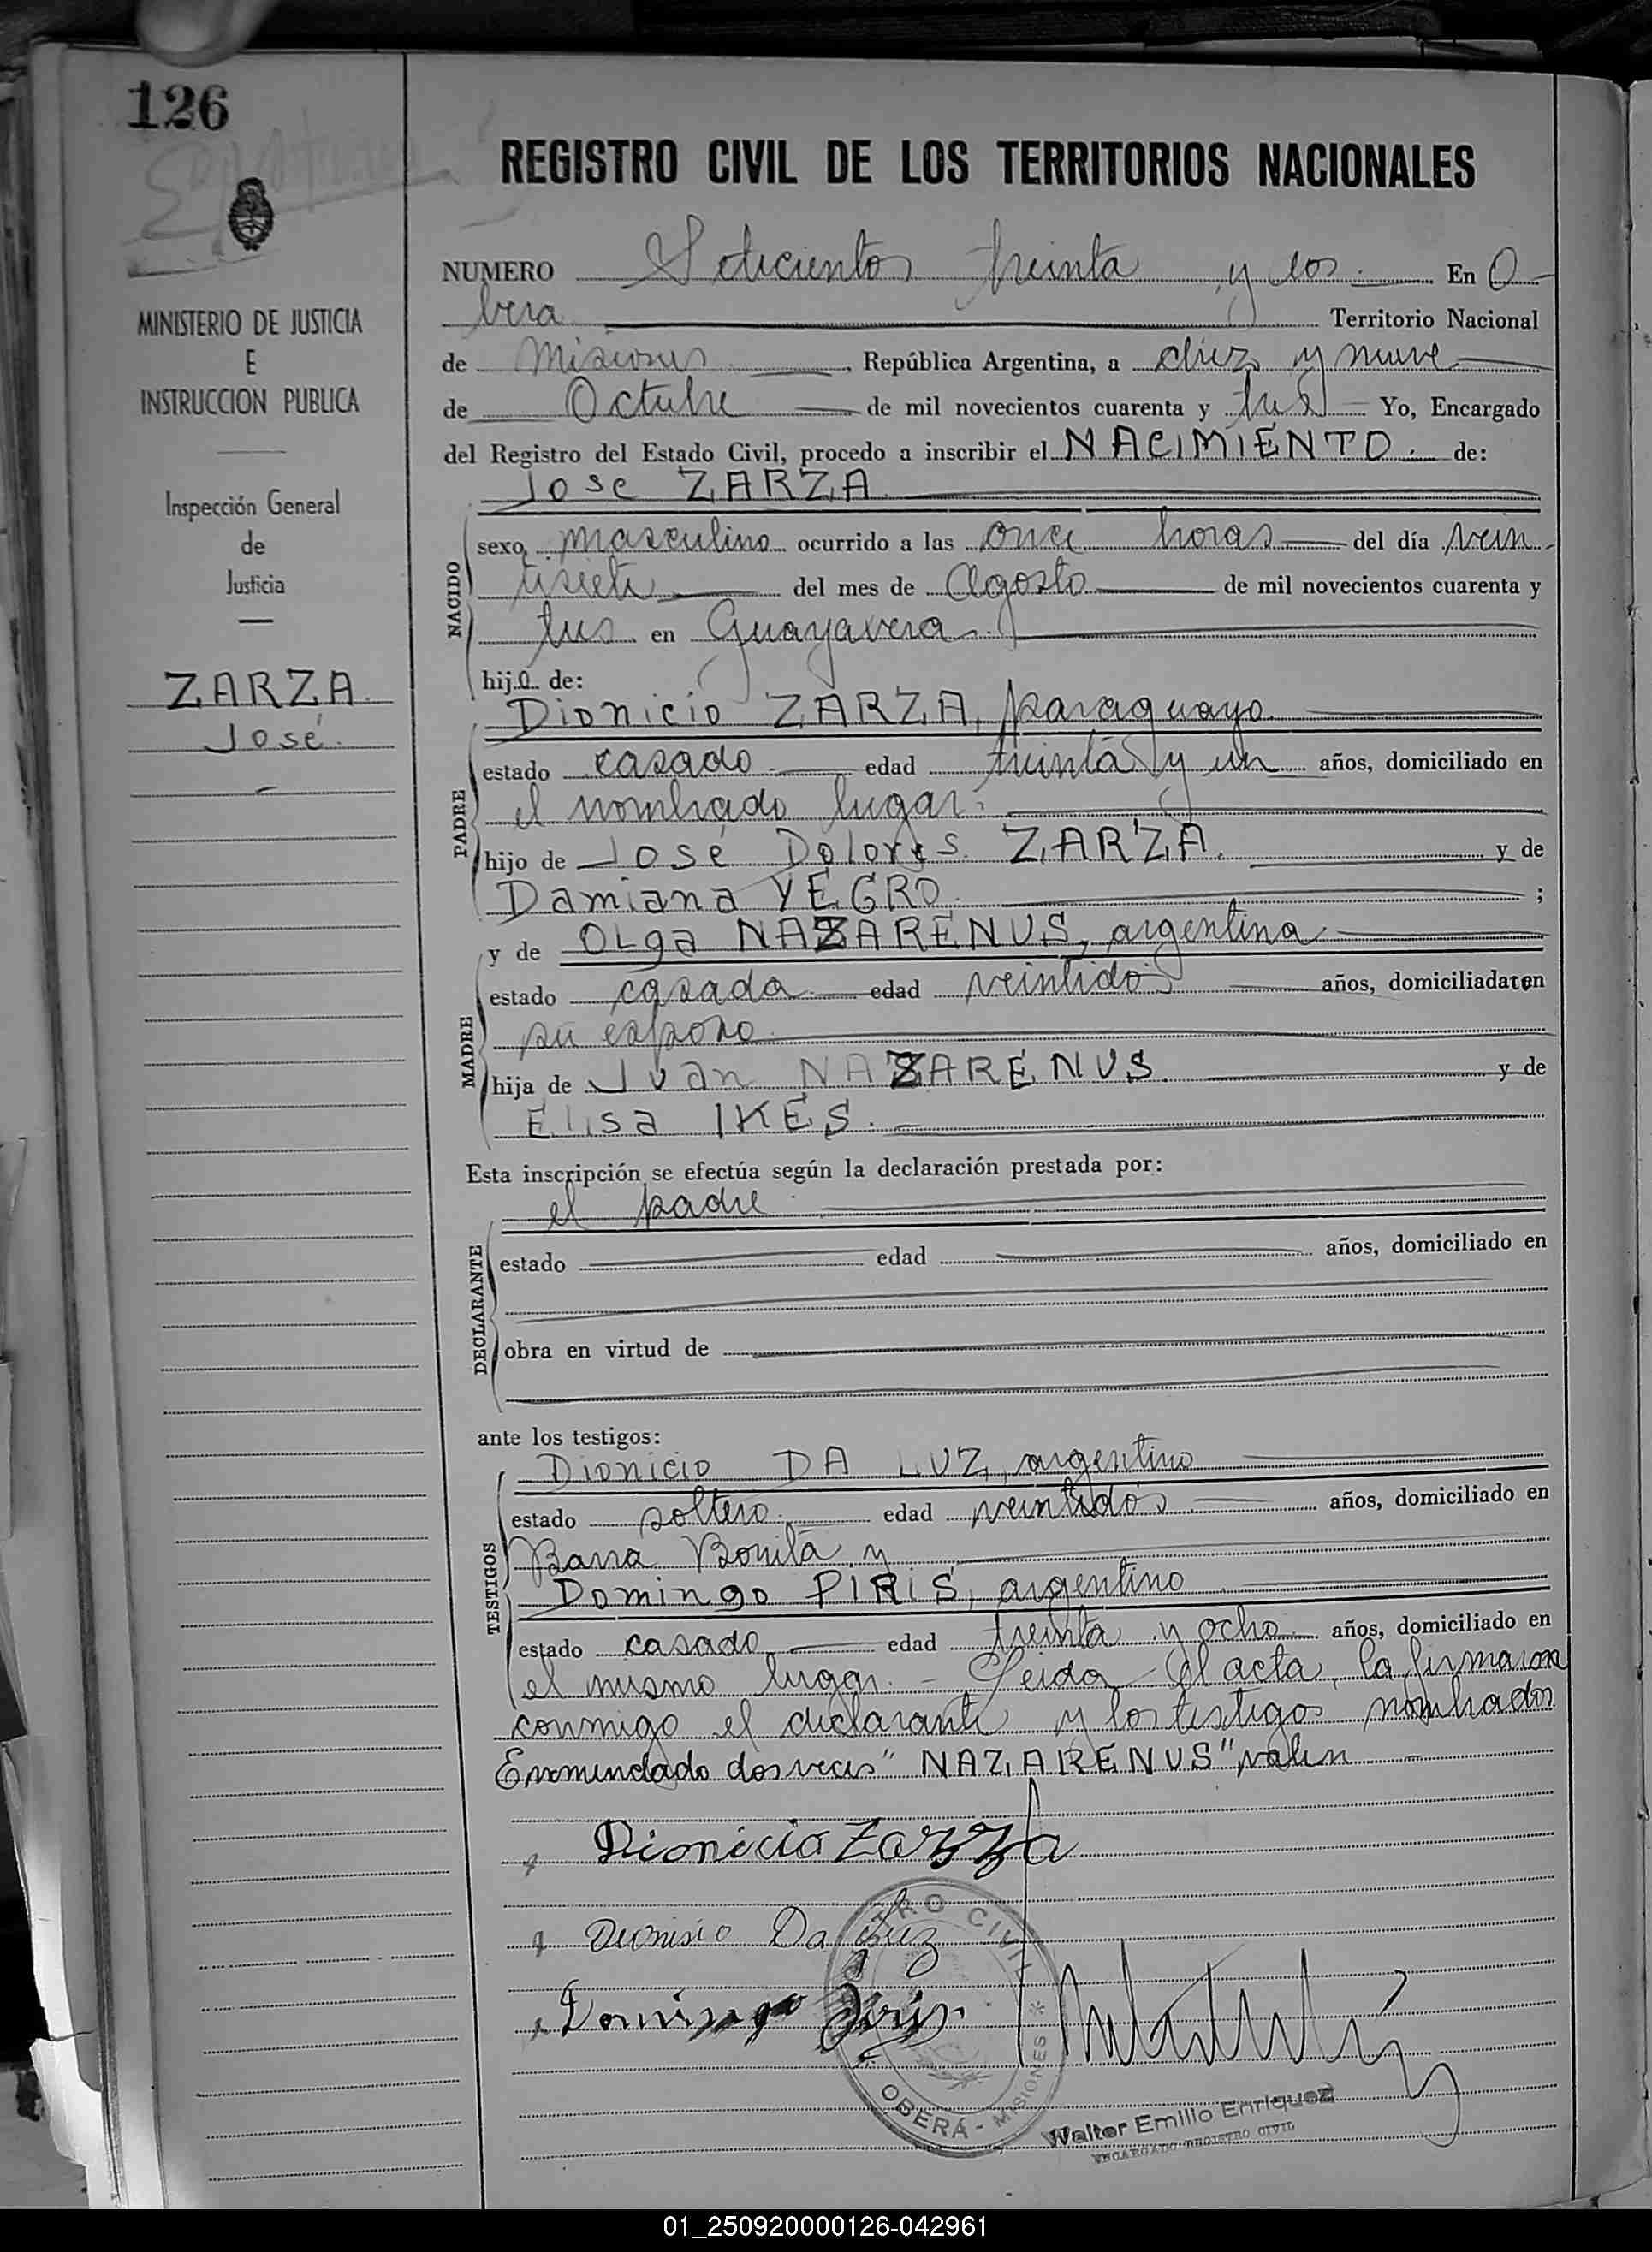 126
REGISTRO CIVIL DE LOS TERRITORIOS NACIONALES
NUMERO Setecientos treinta y dos En O-
bera Territorio Nacional
de Misiones, República Argentina, a diez y nueve
de Octubre de mil novecientos cuarenta y tres Yo, Encargado
del Registro del Estado Civil, procedo a inscribir el NACIMIENTO. de:
Jose ZARZA
sexo masculino ocurrido a las once horas del día vein-
tisiete del mes de Agosto de mil novecientos cuarenta y
tres en Guayavera.
hijo de:
NACIDO
Dionicio ZARZA, paraguayo.
estado casado edad treinta y un años, domiciliado en
el nombrado lugar.
hijo de José Dolores ZARZA. y de
Damiana YEGRO. ;
PADRE
y de Olga NAZARENUS, argentina
estado casada edad veintidos años, domiciliadaten
su esposo
hija de Juan NAZARENUS. y de
Elisa IKES.
MADRE
Esta inscripción se efectúa según la declaración prestada por:
el padre
estado edad años, domiciliado en
obra en virtud de
DECLARANTE
ante los testigos:
Dionicio DA LUZ, argentino
estado soltero edad veintidos años, domiciliado en
Barra Bonita y
Domingo PIRIS, argentino
estado casado edad treinta y ocho años, domiciliado en
el mismo lugar. - Leida el acta, la firmaron
conmigo el declarante y los testigos nombrados
Enmendado dos veces "NAZARENUS" valen
TESTIGOS
Dionicio Zarza
Dionisio Da Luz
Domingo Piris
CIVIL
OBERÁ - MISIONES *
Walter Emilio Enriquez
ENCARGADO REGISTRO CIVIL
MINISTERIO DE JUSTICIA
E
INSTRUCCION PUBLICA
Inspección General
de
Justicia
ZARZA
José.
01_250920000126-042961